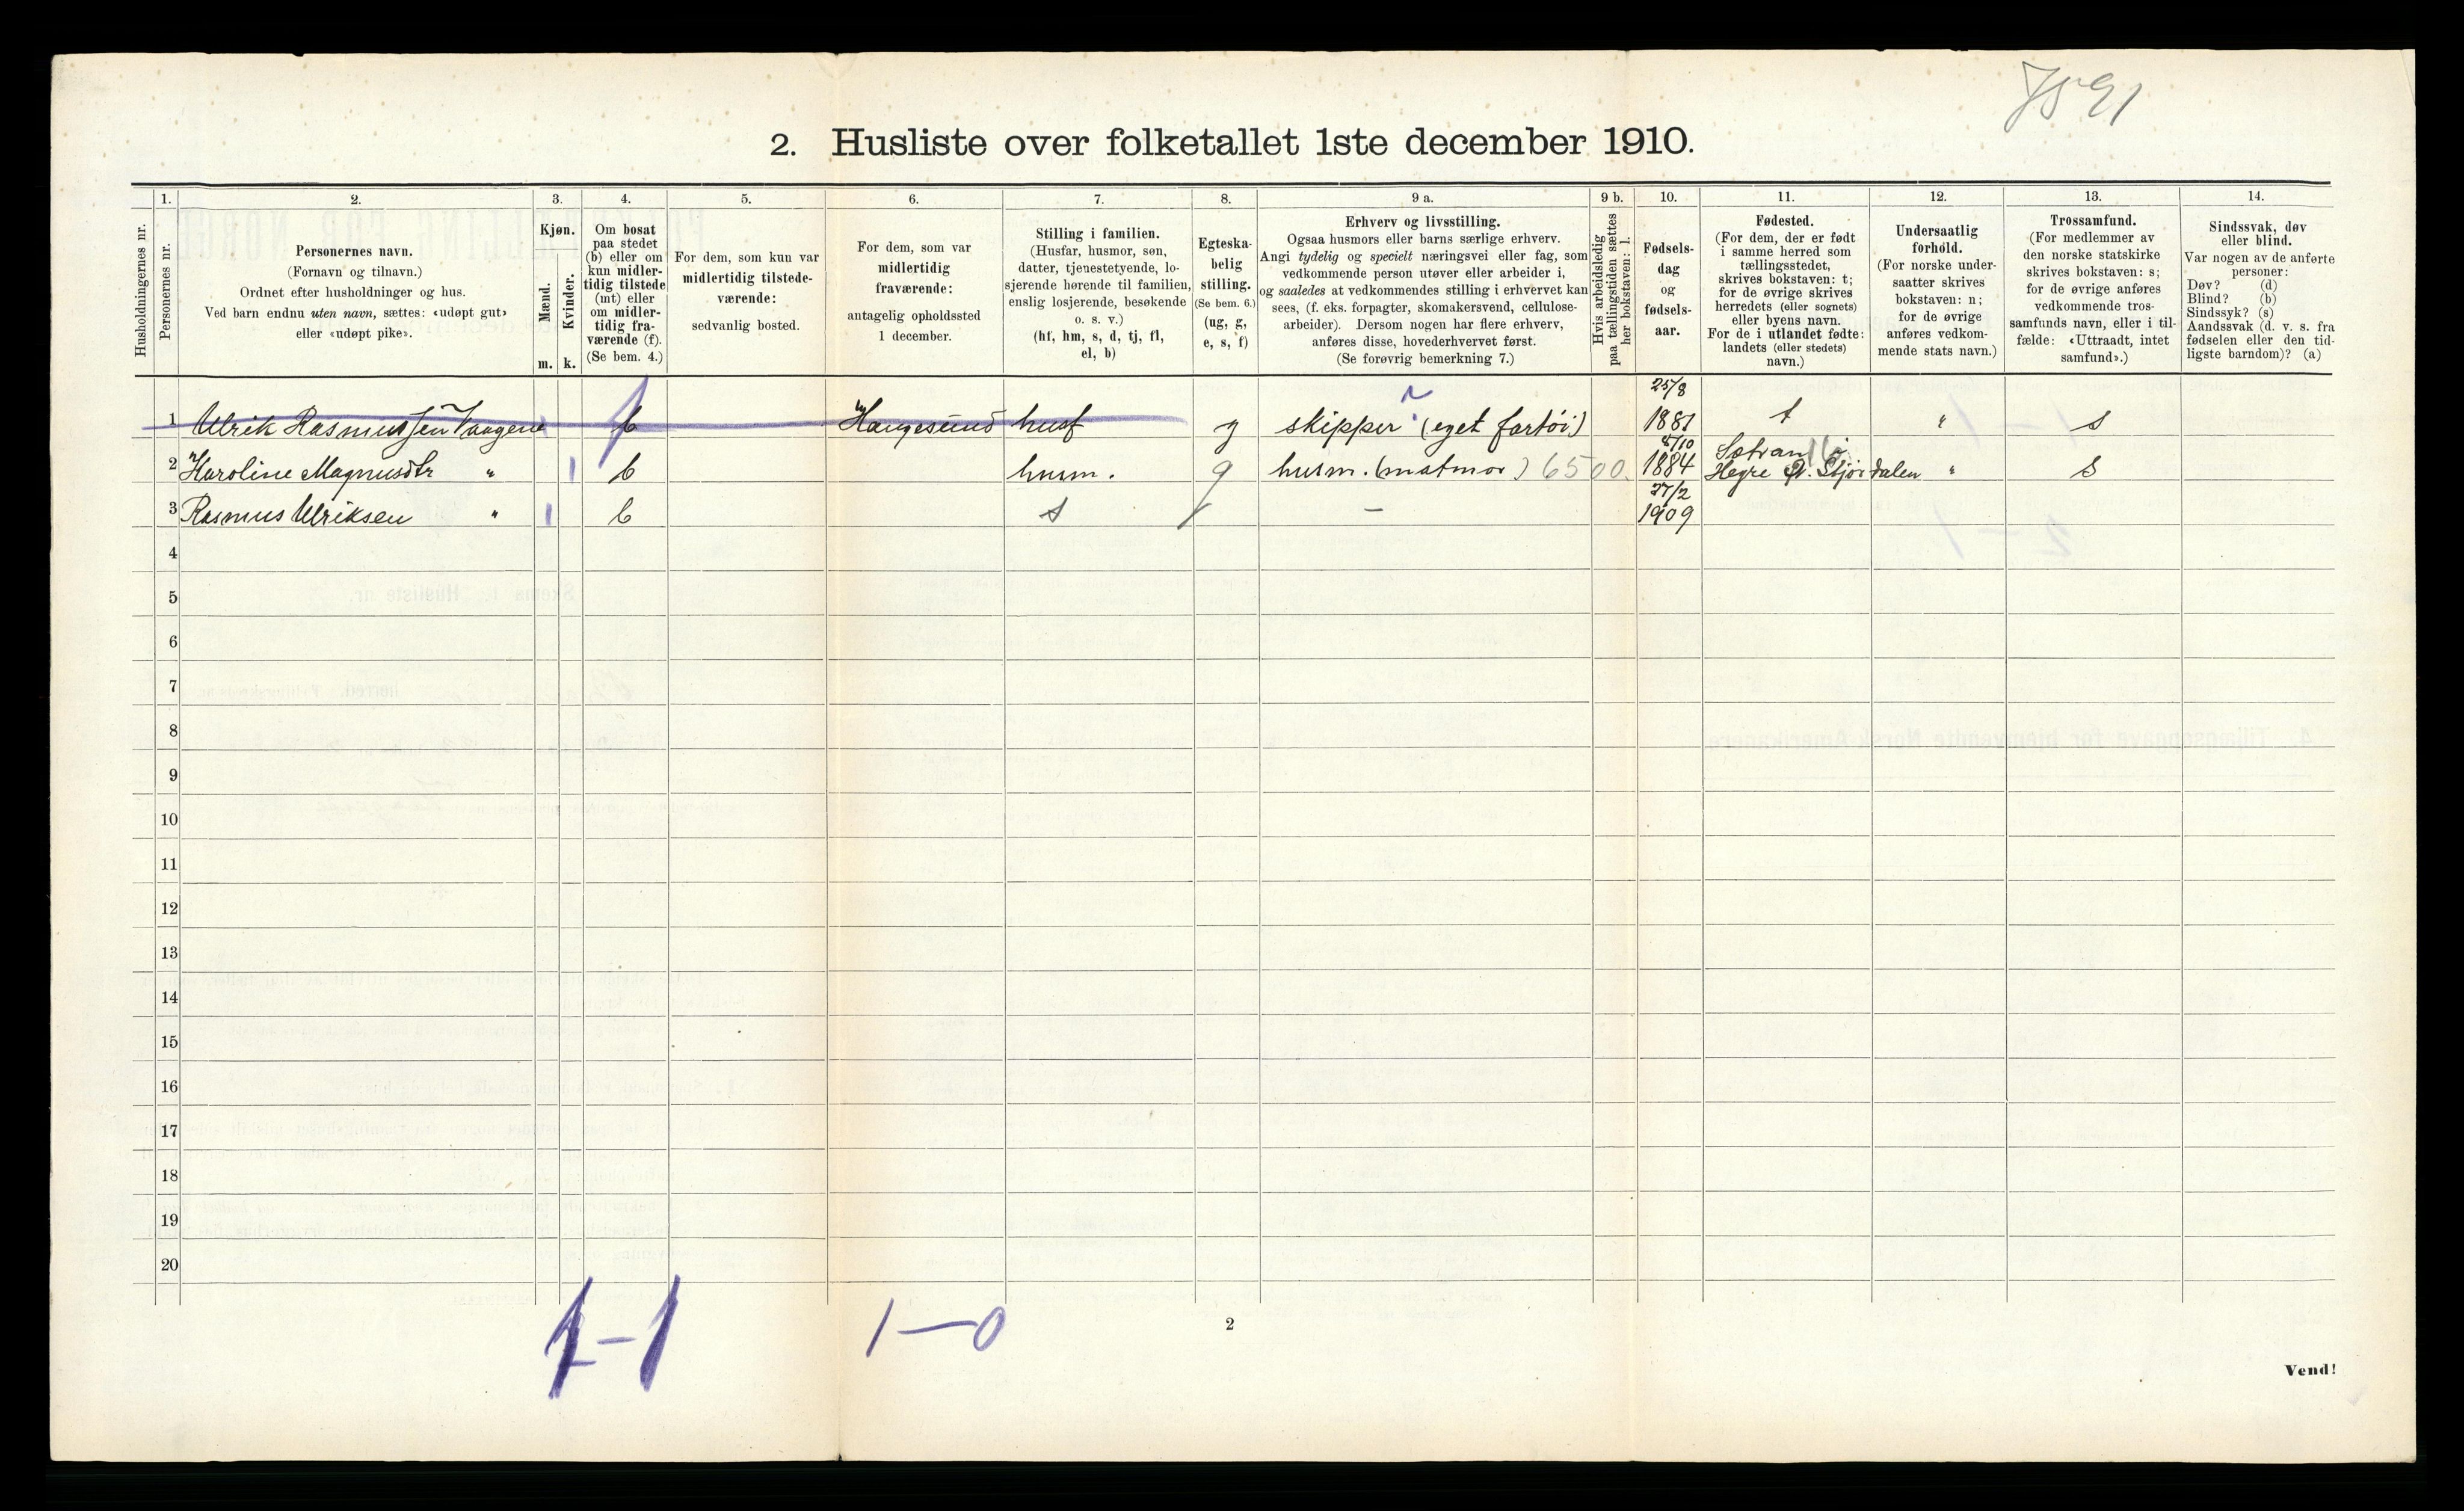 7591
2. Husliste over folketallet 1ste december 1910.
1. 2. 3. 4. 5. 6. 7. 8. 9 a. 9 b. 10. 11. 12. 13. 14.
Husholdningernes nr.
Personernes nr.
Personernes navn.
(Fornavn og tilnavn.)
Ordnet efter husholdninger og hus.
Ved barn endnu uten navn, sættes: «udøpt gut»
eller «udøpt pike».
Kjøn.
Mænd.
m.
Kvinder.
k.
Om bosat
paa stedet
(b) eller om
kun midler-
tidig tilstede
(mt) eller
om midler-
tidig fra-
værende (f).
(Se bem. 4.)
For dem, som kun var
midlertidig tilstede-
værende:
sedvanlig bosted.
For dem, som var
midlertidig
fraværende:
antagelig opholdssted
1 december.
Stilling i familien.
(Husfar, husmor, søn,
datter, tjenestetyende, lo-
sjerende hørende til familien,
enslig losjerende, besøkende
o. s. v.)
(hf, hm, s, d, tj, fl,
el, b)
Egteska-
belig
stilling.
(Se bem. 6.)
(ug, g,
e, s, f)
Erhverv og livsstilling.
Ogsaa husmors eller barns særlige erhverv.
Angi tydelig og specielt næringsvei eller fag, som
vedkommende person utøver eller arbeider i,
og saaledes at vedkommendes stilling i erhvervet kan
sees, (f. eks. forpagter, skomakersvend, cellulose-
arbeider). Dersom nogen har flere erhverv,
anføres disse, hovederhvervet først.
(Se forøvrig bemerkning 7.)
Hvis arbeidsledig
paa tællingstiden sættes
her bokstaven: l.
Fødsels-
dag
og
fødsels-
aar.
Fødested.
(For dem, der er født
i samme herred som
tællingsstedet,
skrives bokstaven: t;
for de øvrige skrives
herredets (eller sognets)
eller byens navn.
For de i utlandet fødte:
landets (eller stedets)
navn.)
Undersaatlig
forhold.
(For norske under-
saatter skrives
bokstaven: n;
for de øvrige
anføres vedkom-
mende stats navn.)
Trossamfund.
(For medlemmer av
den norske statskirke
skrives bokstaven: s;
for de øvrige anføres
vedkommende tros-
samfunds navn, eller i til-
fælde: «Uttraadt, intet
samfund».)
Sindssvak, døv
eller blind.
Var nogen av de anførte
personer:
Døv? (d)
Blind? (b)
Sindssyk? (s)
Aandssvak (d. v. s. fra
fødselen eller den tid-
ligste barndom)? (a)
25/8
1 Ulrik Rasmussen Vaagene b Haugesund husf g skipper (eget fartøi) 1881 t " s
5/10
2 Karoline Magnusdtr " 1 b husm. g husm. (matmor) 6500. 1884 Hegre Stjørdalen " s
27/2
3 Rasmus Ulriksen " 1 b s – 1909
4
5
6
7
8
9
10
11
12
13
14
15
16
17
18
19
20
1–1 1–0
2
Vend!